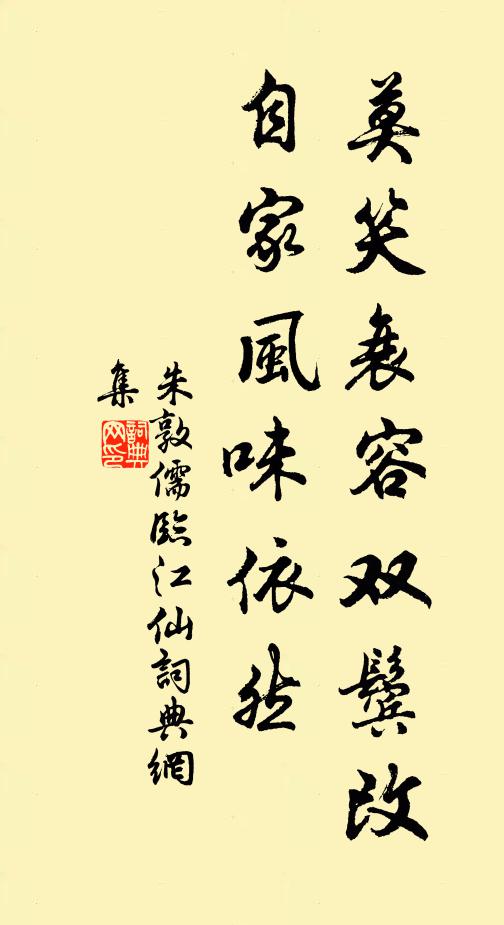 莫笑衰容双鬓改
自家風味依然
朱敦儒臨江仙詞典網
集
詞典网印